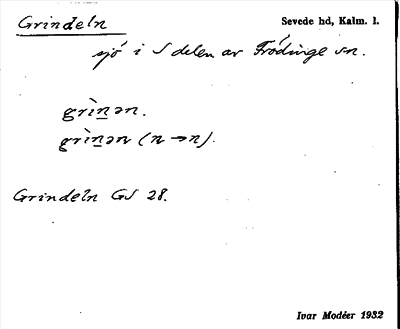 Grindeln
Sevede hd, Kalm. l.
sjö i S delen av Frödinge sn.
grìn̲ən.
grìn̲ən (n→n).
Grindeln GS 28.
Ivar Modéer 1932